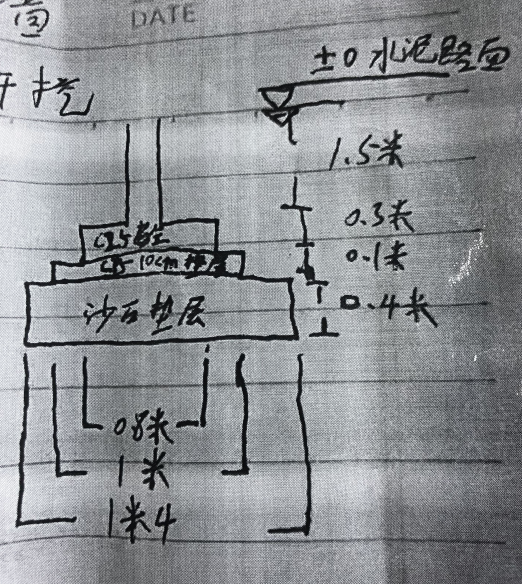 DATE
±0 水泥路面
开挖
1.5米
0.3米
C25砼
0.1米
C15 10cm 垫层
0.4米
沙石垫层
0.8米
1米
1米4